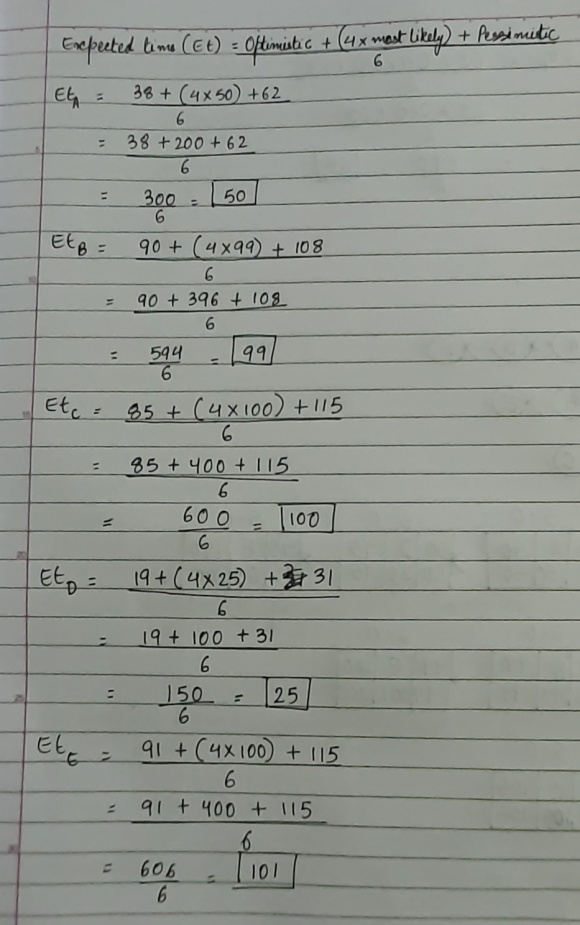 Excpected time (Et) = Optimistic + (4 x most likely) + Pessimistic
6
EtA = 38 + (4×50) + 62
6
= 38 + 200 + 62
6
= 300 = 50
6
EtB = 90 + (4×99) + 108
6
= 90 + 396 + 108
6
= 594 = 99
6
EtC = 85 + (4×100) + 115
6
= 85 + 400 + 115
6
= 600 = 100
6
EtD = 19 + (4×25) + 31
6
= 19 + 100 + 31
6
= 150 = 25
6
EtE = 91 + (4×100) + 115
6
= 91 + 400 + 115
6
= 606 = 101
6